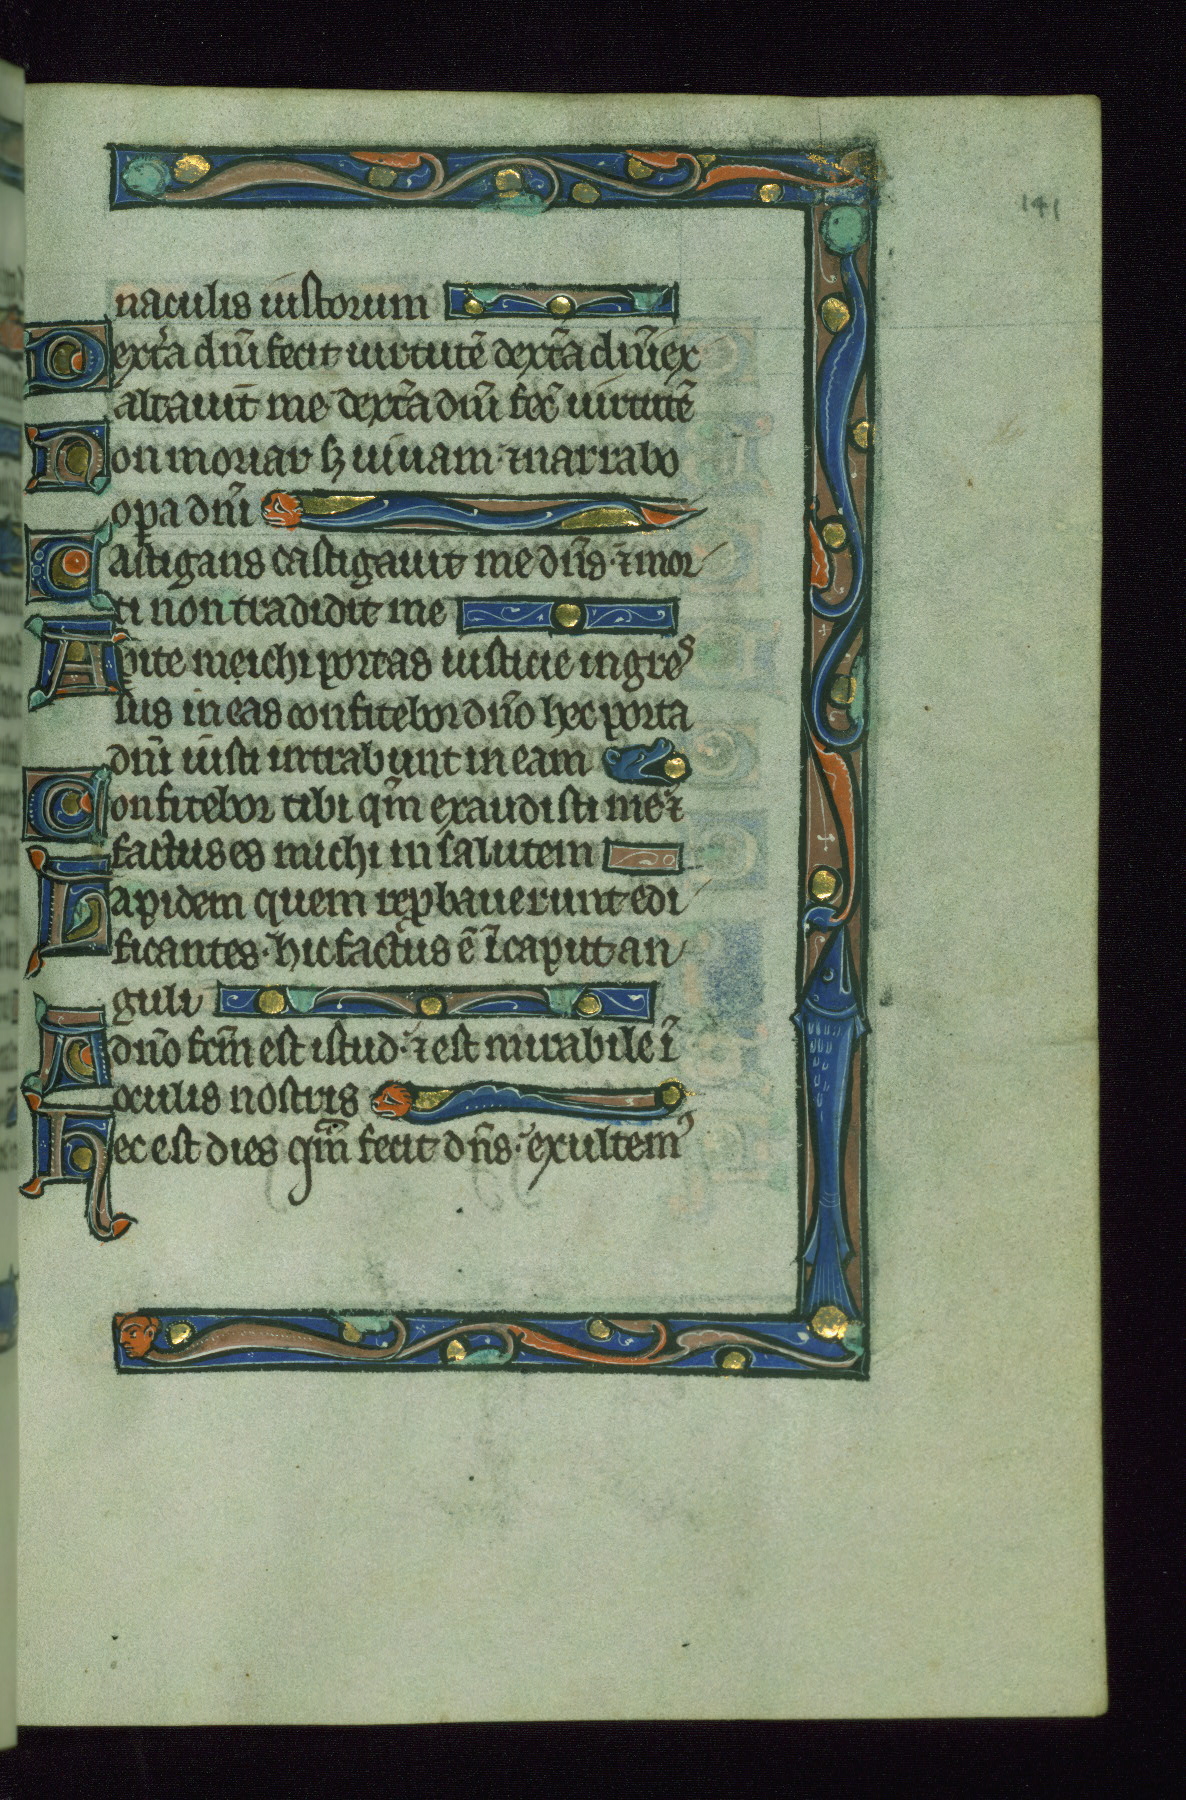 141
naculis iustorum
Dext̃a dñi fecit uirtutẽ dext̃a dñi ex
altauit me dext̃a dñi fec̃ uirtutẽ
Non moriar sꝫ uiuam ⁊ narrabo
opa dñi
Castigans castigauit me dñs · ⁊ mor
ti non tradidit me
Apite meichi portas iusticie ingres
sus in eas confitebor dño hec porta
dñi iusti intrabunt in eam
Confitebor tibi qm̃ exaudisti me ⁊
factus es michi in salutem
Lapidem quem reꝓbauerunt edi
ficantes · hic factus ẽ ĩ caput an
guli
A dño fcm̃ est istud · ⁊ est mirabile ĩ
oculis nostris
Hec est dies qm̃ fecit dñs · exultemꝰ